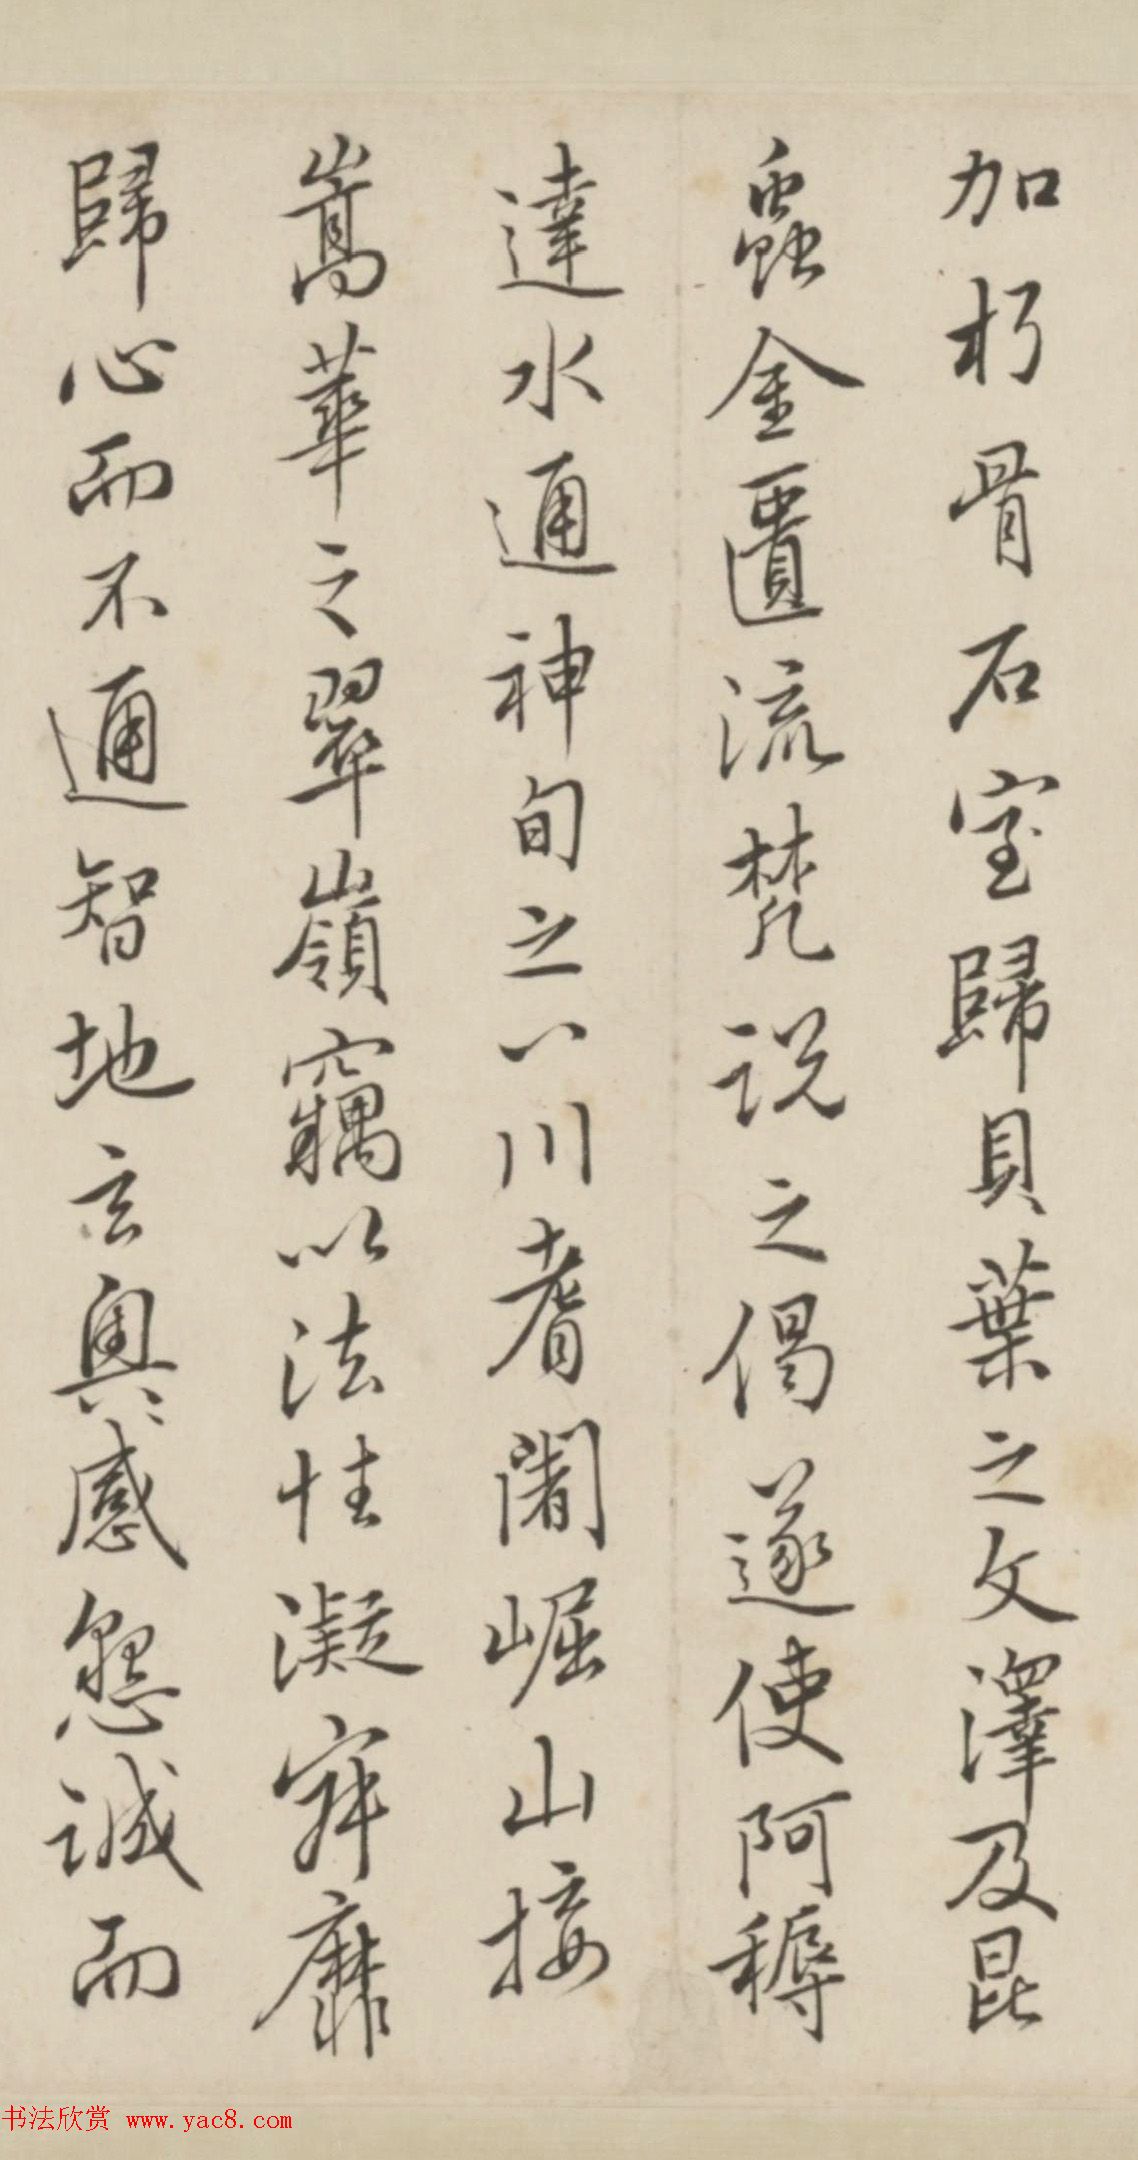 加朽骨石室歸貝葉之文澤及昆
蟲金匱流梵説之偈遂使阿耨
達水通神甸之八川耆闍崛山接
嵩華之翠嶺竊以法性凝寂靡
歸心而不通智地玄奥感懇誠而
书法欣赏 www.yac8.com